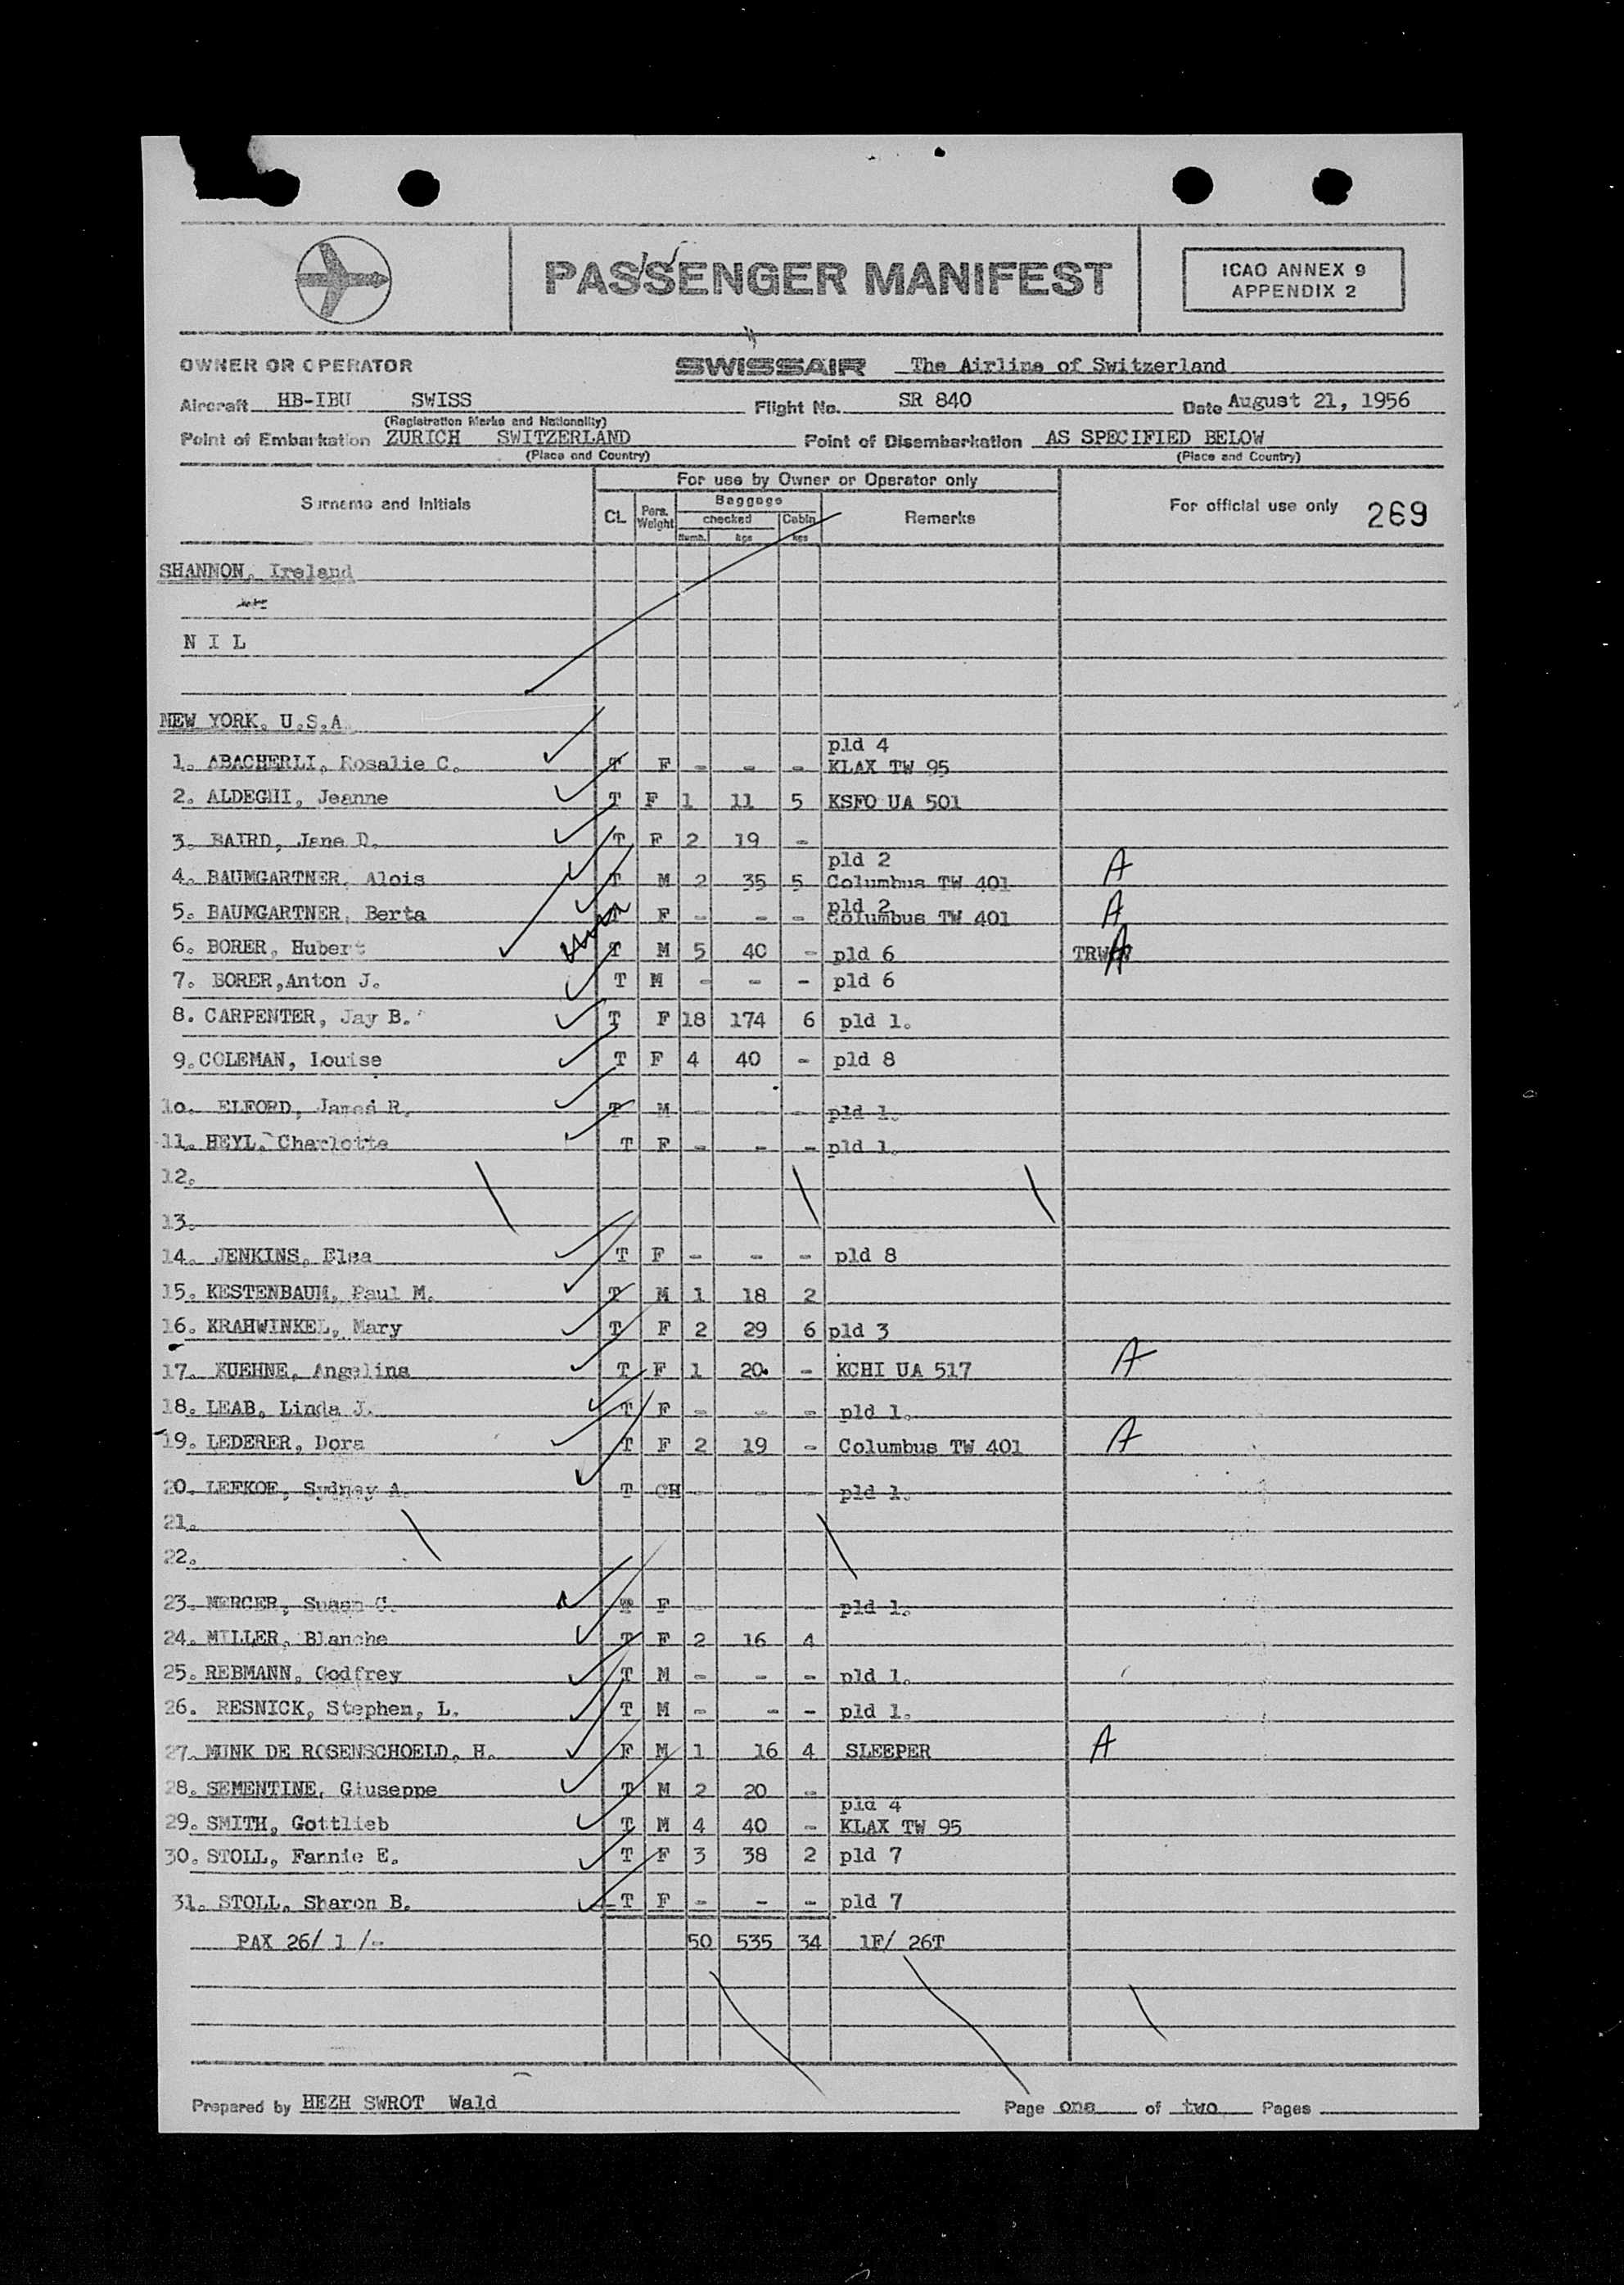 PASSENGER MANIFEST
ICAO ANNEX 9
APPENDIX 2
OWNER OR OPERATOR SWISSAIR The Airline of Switzerland
Aircraft HB-IBU SWISS Flight No. SR 840 Date August 21, 1956
(Registration Marks and Nationality)
Point of Embarkation ZURICH SWITZERLAND Point of Disembarkation AS SPECIFIED BELOW
(Place and Country) (Place and Country)
For use by Owner or Operator only
Surname and Initials CL Pers. Weight Baggage checked Numb. kgs Cabin kgs Remarks For official use only 269
SHANNON, Ireland
N I L
NEW YORK, U.S.A
pld 4
1. ABACHERLI, Rosalie C. T F - - - KLAX TW 95
2. ALDEGHI, Jeanne T F 1 11 5 KSFO UA 501
3. BAIRD, Jane D. T F 2 19 -
pld 2
4. BAUMGARTNER, Alois T M 2 35 5 Columbus TW 401 A
pld 2
5. BAUMGARTNER, Berta T F - - - Columbus TW 401 A
6. BORER, Hubert T M 5 40 - pld 6 A
7. BORER,Anton J. T M - - - pld 6
8. CARPENTER, Jay B. T F 18 174 6 pld 1.
9.COLEMAN, Louise T F 4 40 - pld 8
10. ELFORD, James R. T M - - - pld 1.
11. HEYL, Charlotte T F - - - pld 1.
12.
13.
14. JENKINS, Elsa T F - - - pld 8
15. KESTENBAUM, Paul M. T M 1 18 2
16. KRAHWINKEL, Mary T F 2 29 6 pld 3
17. KUEHNE, Angelina T F 1 20. - KCHI UA 517 A
18. LEAB, Linda J. T F - - - pld 1.
19. LEDERER, Dora T F 2 19 - Columbus TW 401 A
20. LEFKOE, Sydney A. T CH - - - pld 1.
21.
22.
23. MERCER, Susan C. T F - - - pld 1.
24. MILLER, Blanche T F 2 16 4
25. REBMANN, Godfrey T M - - - pld 1.
26. RESNICK, Stephen, L. T M - - - pld 1.
27. MUNK DE ROSENSCHOELD, H. F M 1 16 4 SLEEPER A
28. SEMENTINE, Giuseppe T M 2 20 -
pld 4
29. SMITH, Gottlieb T M 4 40 - KLAX TW 95
30. STOLL, Fannie E. T F 3 38 2 pld 7
31. STOLL, Sharon B. T F - - - pld 7
PAX 26/ 1 /- 50 535 34 1F/ 26T
Prepared by HEZH SWROT Wald Page one of two Pages